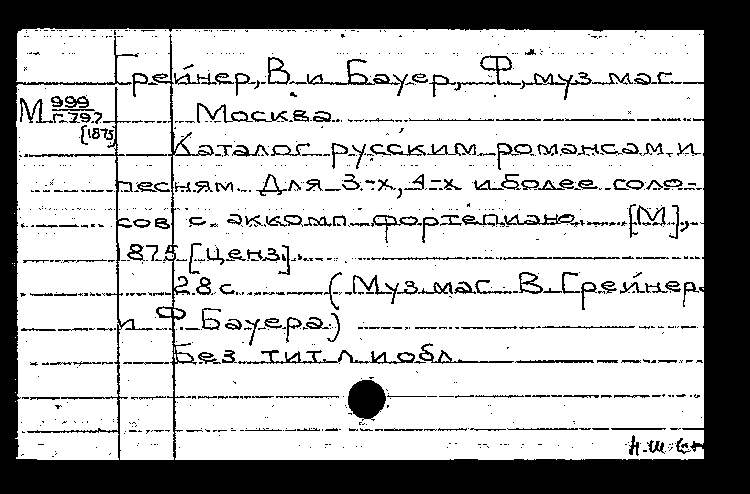 Грейнер, В и Бауер, Ф, муз маг
М 999
Г.797
[1875]
Москва
Каталог русским романсам и
песням. Для 3-х, 4-х и более голо-
сов с аккомп фортепиано. [М],
1875 [ценз].
28 с. (Муз. маг В. Грейнер
и Ф Бауера)
Без тит. л. и обл.